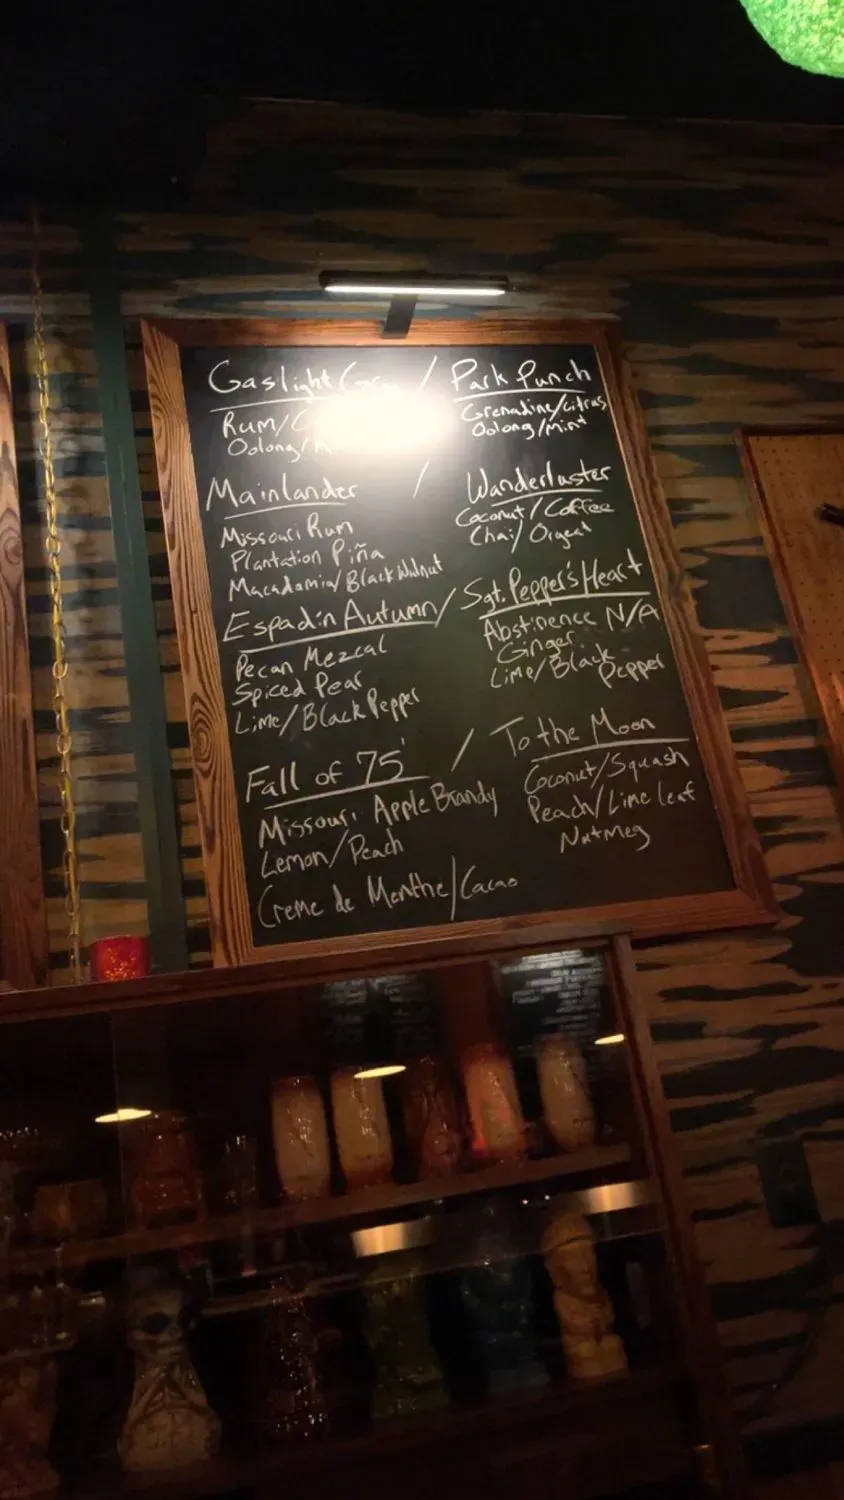 Gaslight / Park Punch
Rum/ Grenadine/Citrus
Oolong/ Oolong/Mint
Mainlander / Wanderluster
Missouri Rum
Plantation Piña
Macadamia/Black Walnut
Coconut/Coffee
Chai/Orgeat
Espadín Autumn / Sgt. Pepper's Heart
Pecan Mezcal
Spiced Pear
Lime/Black Pepper
Abstinence N/A
Ginger
Lime/Black
Pepper
Fall of 75' / To the Moon
Missouri Apple Brandy
Lemon/Peach
Creme de Menthe/Cacao
Coconut/Squash
Peach/Lime leaf
Nutmeg